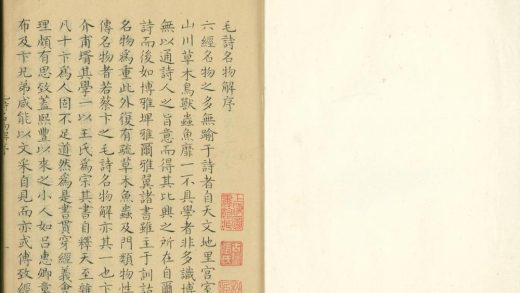 毛詩名物解序
六經名物之多無踰于詩者自天文地里宮室
山川草木鳥獸蟲魚靡一不具學者非多識博
無以通詩人之旨意而得其比興之所在自爾
詩而後如博雅埤雅爾雅翼諸書雖主于訓詁
名物為重此外復有疏草木魚蟲及門類物性
傳名物者若蔡卞之毛詩名物解亦其一也卞
介甫壻其學一以王氏為宗其書自釋天至雜
凡十卞為人固不足道然為是書貫穿經義會
理頗有思致蓋熙豐以來之小人如呂惠卿章
布及卞兄弟咸能以文采自見而亦武傳致經